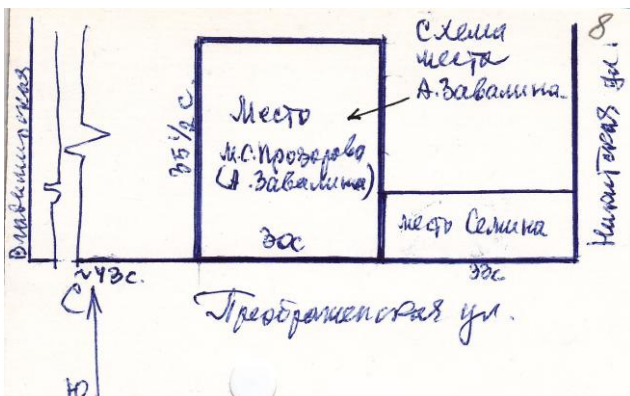 Схема
места
А. Завалина.
8
Владимирская
35 1/2 с.
Место
М.С. Прозорова
(А. Завалина)
30с
место Семина
Никитская ул.
~43с.
33с.
С
Преображенская ул.
Ю